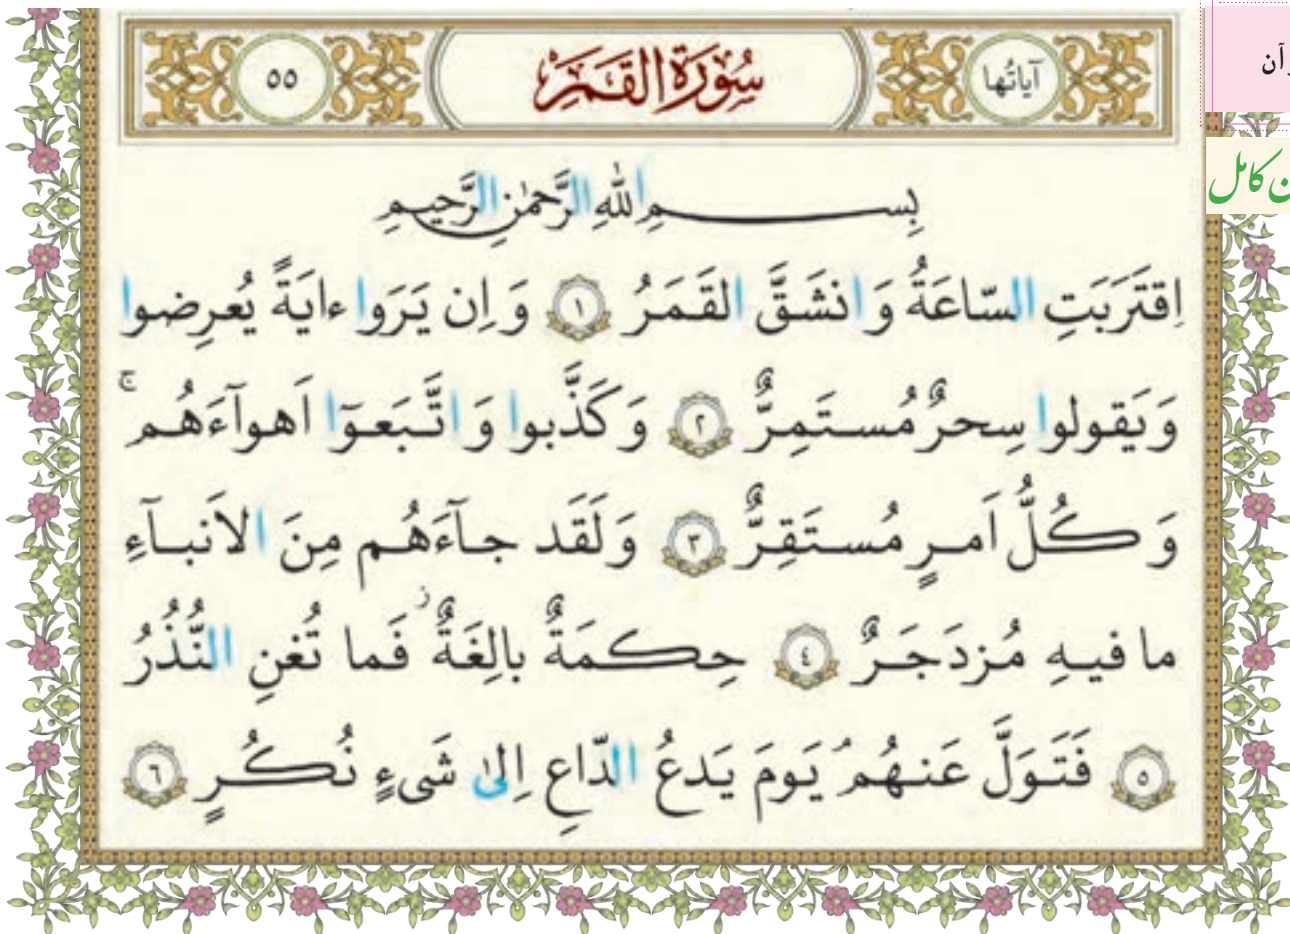 آیاتُها سُورَةُ القَمَرِ ٥٥
بِسمِ اللهِ الرَّحمٰنِ الرَّحیمِ
اِقتَرَبَتِ السّاعَةُ وَ انشَقَّ القَمَرُ ١ وَ اِن یَرَوا ءایَةً یُعرِضوا
وَ یَقولوا سِحرٌ مُستَمِرٌّ ٢ وَ کَذَّبوا وَ اتَّبَعوٓا اَهوآءَهُم ۚ
وَ کُلُّ اَمرٍ مُستَقِرٌّ ٣ وَ لَقَد جآءَهُم مِنَ الاَنبآءِ
ما فیهِ مُزدَجَرٌ ٤ حِکمَةٌ بالِغَةٌ ز فَما تُغنِ النُّذُرُ
٥ فَتَوَلَّ عَنهُم یَومَ یَدعُ الدّاعِ اِلیٰ شَیءٍ نُکُرٍ ٦
کامل